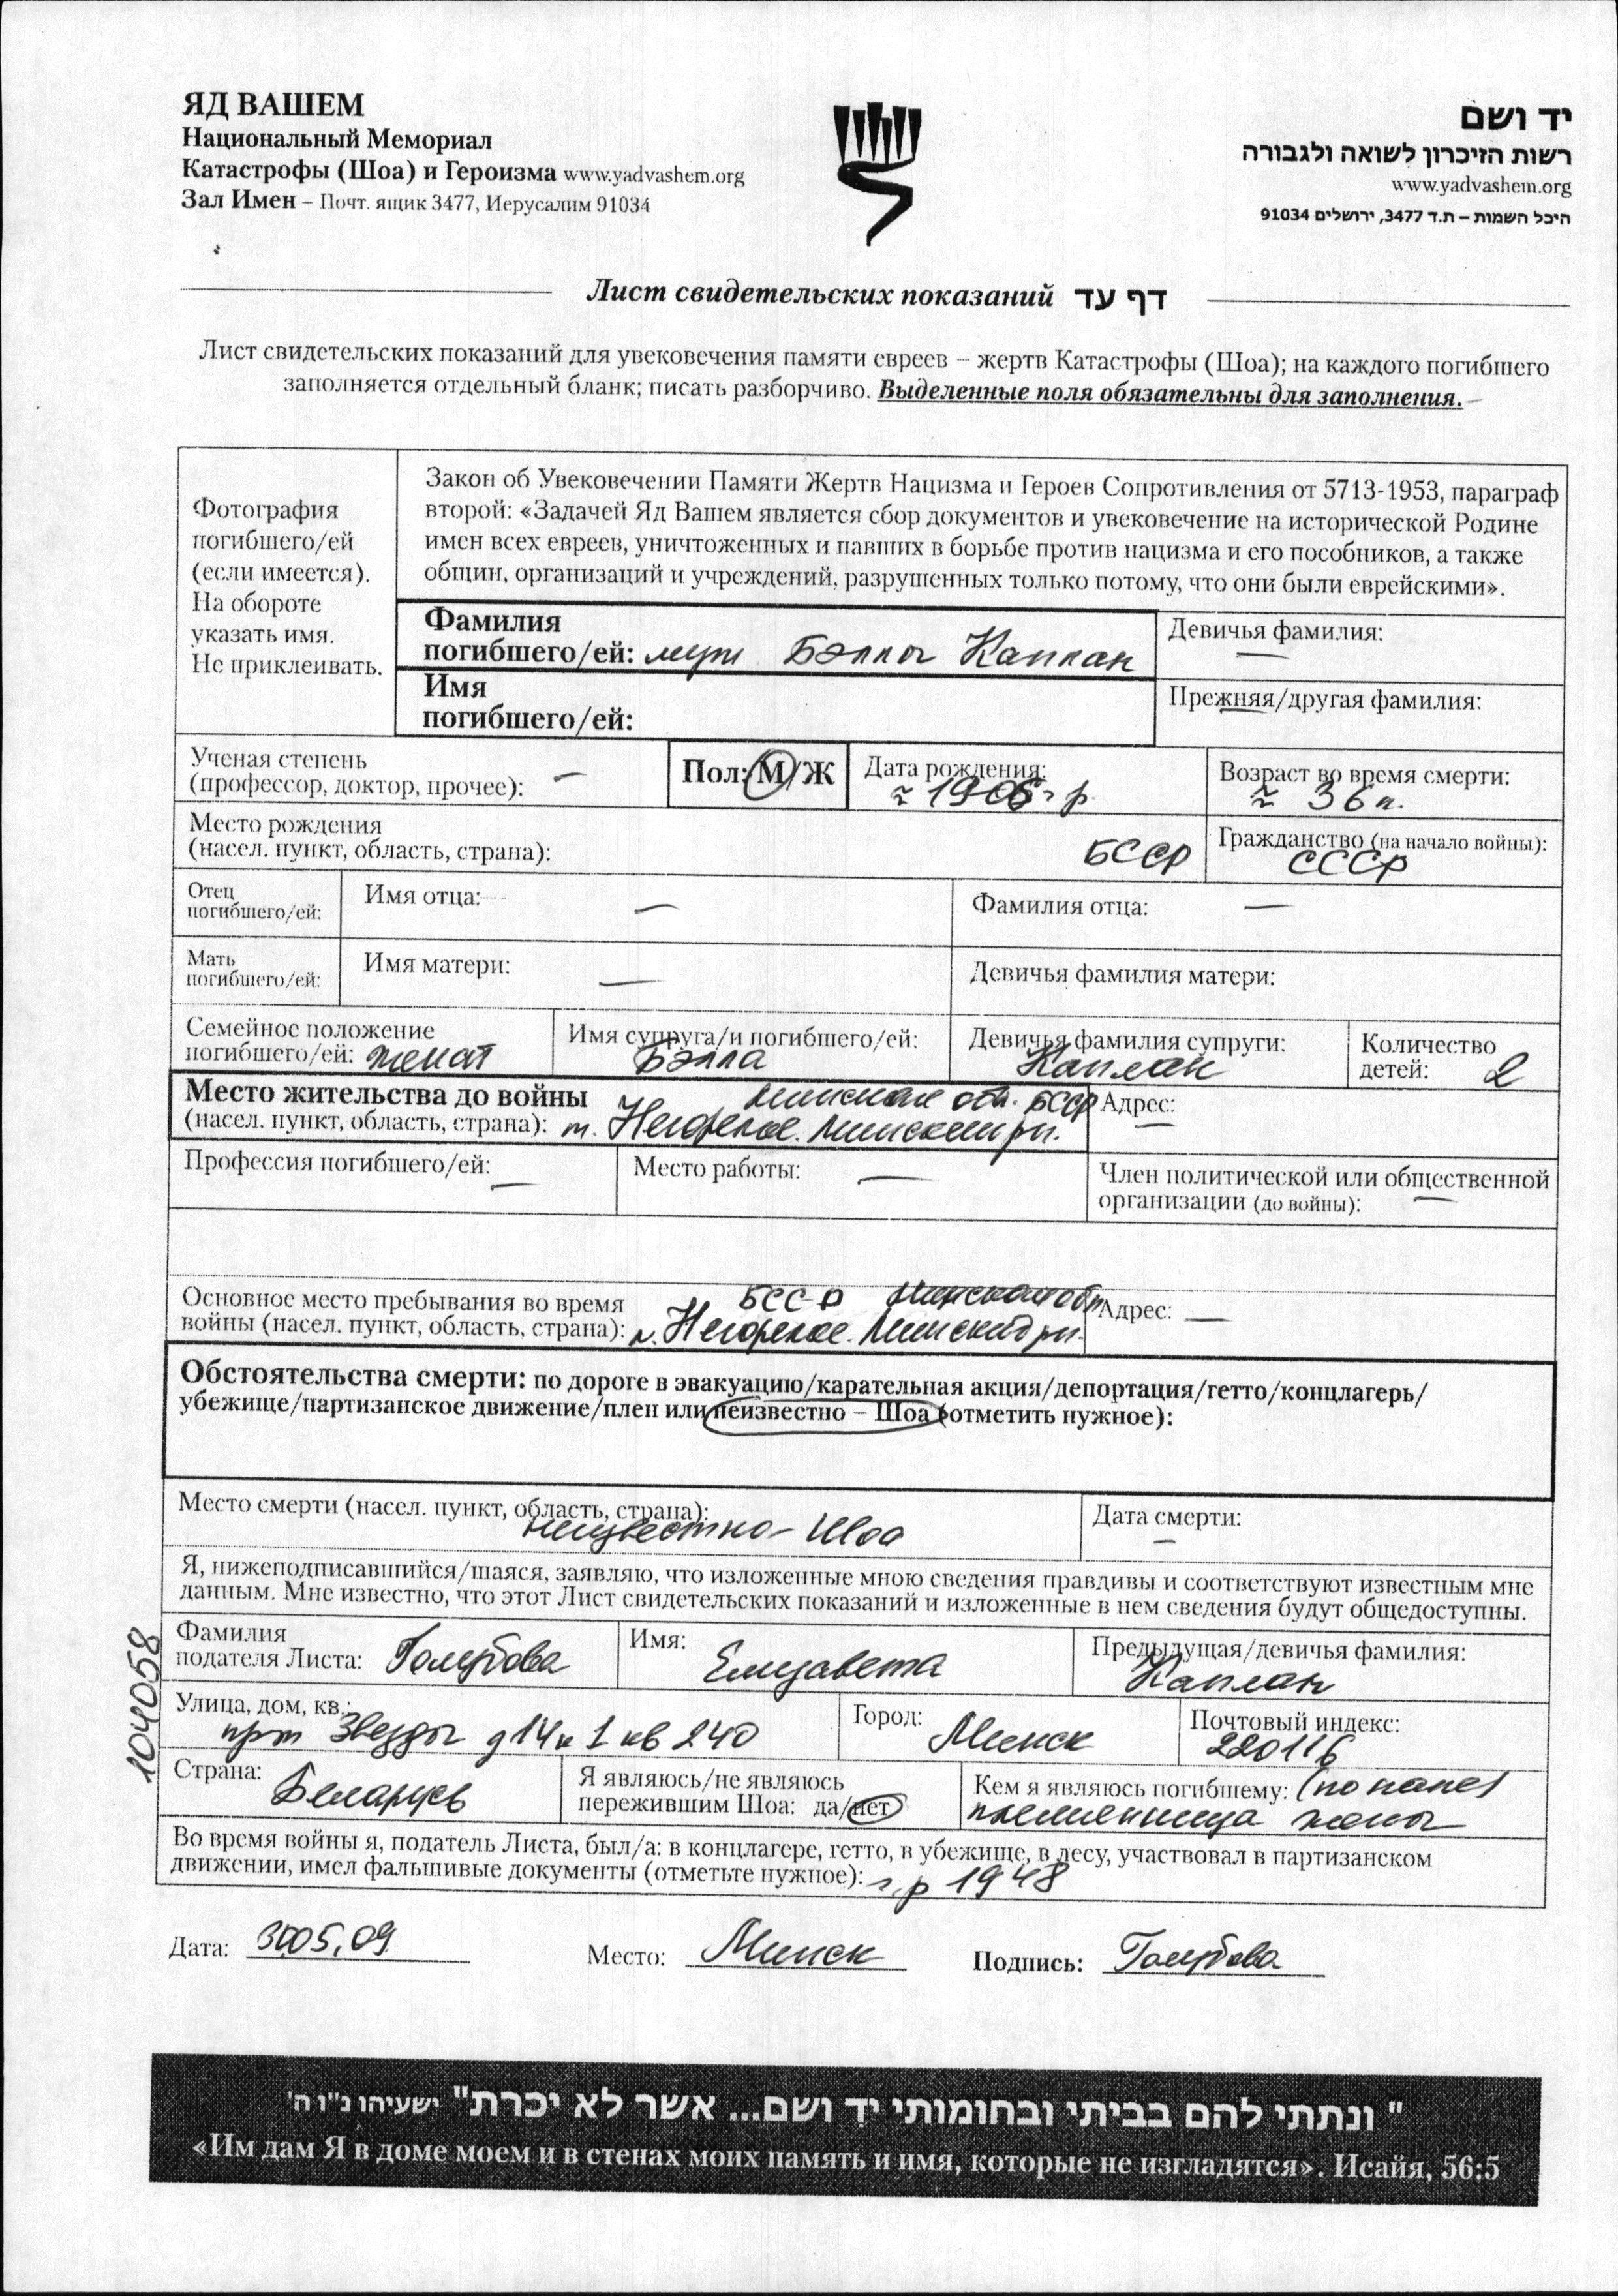 ЯД ВАШЕМ
Национальный Мемориал
Катастрофы (Шоа) и Героизма www.yadvashem.org
Зал Имен – Почт. ящик 3477, Иерусалим 91034
יד ושם
רשות הזיכרון לשואה ולגבורה
www.yadvashem.org
היכל השמות – ת.ד 3477, ירושלים 91034
Лист свидетельских показаний דף עד
Лист свидетельских показаний для увековечения памяти евреев – жертв Катастрофы (Шоа); на каждого погибшего
заполняется отдельный бланк; писать разборчиво. Выделенные поля обязательны для заполнения.
Фотография
погибшего/ей
(если имеется).
На обороте
указать имя.
Не приклеивать.
Закон об Увековечении Памяти Жертв Нацизма и Героев Сопротивления от 5713-1953, параграф
второй: «Задачей Яд Вашем является сбор документов и увековечение на исторической Родине
имен всех евреев, уничтоженных и павших в борьбе против нацизма и его пособников, а также
общин, организаций и учреждений, разрушенных только потому, что они были еврейскими».
Фамилия
погибшего/ей: муж Бэллы Каплан
Девичья фамилия:
—
Имя
погибшего/ей:
Прежняя/другая фамилия:
—
Ученая степень
(профессор, доктор, прочее): —
Пол: М/Ж
Дата рождения:
≈ 1906 г р.
Возраст во время смерти:
≈ 36 л.
Место рождения
(насел. пункт, область, страна): БССР
Гражданство (на начало войны):
СССР
Отец
погибшего/ей:
Имя отца: —
Фамилия отца: —
Мать
погибшего/ей:
Имя матери: —
Девичья фамилия матери:
Семейное положение
погибшего/ей: женат
Имя супруга/и погибшего/ей:
Бэлла
Девичья фамилия супруги:
Каплан
Количество
детей: 2
Место жительства до войны Минская обл. БССР
(насел. пункт, область, страна): Негорелое. Минский
Адрес:
—
Профессия погибшего/ей: —
Место работы: —
Член политической или общественной
организации (до войны): —
Основное место пребывания во время БССР Минская обл
войны (насел. пункт, область, страна): Негорелое. Минский
Адрес: —
Обстоятельства смерти: по дороге в эвакуацию/карательная акция/депортация/гетто/концлагерь/
убежище/партизанское движение/плен или неизвестно – Шоа (отметить нужное):
Место смерти (насел. пункт, область, страна):
неизвестно - Шоа
Дата смерти:
—
Я, нижеподписавшийся/шаяся, заявляю, что изложенные мною сведения правдивы и соответствуют известным мне
данным. Мне известно, что этот Лист свидетельских показаний и изложенные в нем сведения будут общедоступны.
Фамилия
подателя Листа: Голубова
Имя:
Елизавета
Предыдущая/девичья фамилия:
Каплан
Улица, дом, кв.:
Звезды д 14 к 1 кв 240
Город:
Минск
Почтовый индекс:
220116
Страна:
Беларусь
Я являюсь/не являюсь
пережившим Шоа: да/нет
Кем я являюсь погибшему: (по папе)
племянница жены
Во время войны я, податель Листа, был/а: в концлагере, гетто, в убежище, в лесу, участвовал в партизанском
движении, имел фальшивые документы (отметьте нужное): г.р 1948
104058
Дата: 30.05.09
Место: Минск
Подпись: Голубова
" ונתתי להם בביתי ובחומותי יד ושם... אשר לא יכרת" ישעיהו נ"ו ה'
«Им дам Я в доме моем и в стенах моих память и имя, которые не изгладятся». Исайя, 56:5